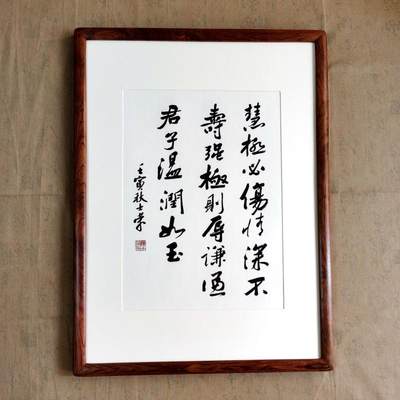 慧極必傷情深不
壽強極則辱謙謙
君子溫潤如玉
壬寅秋士